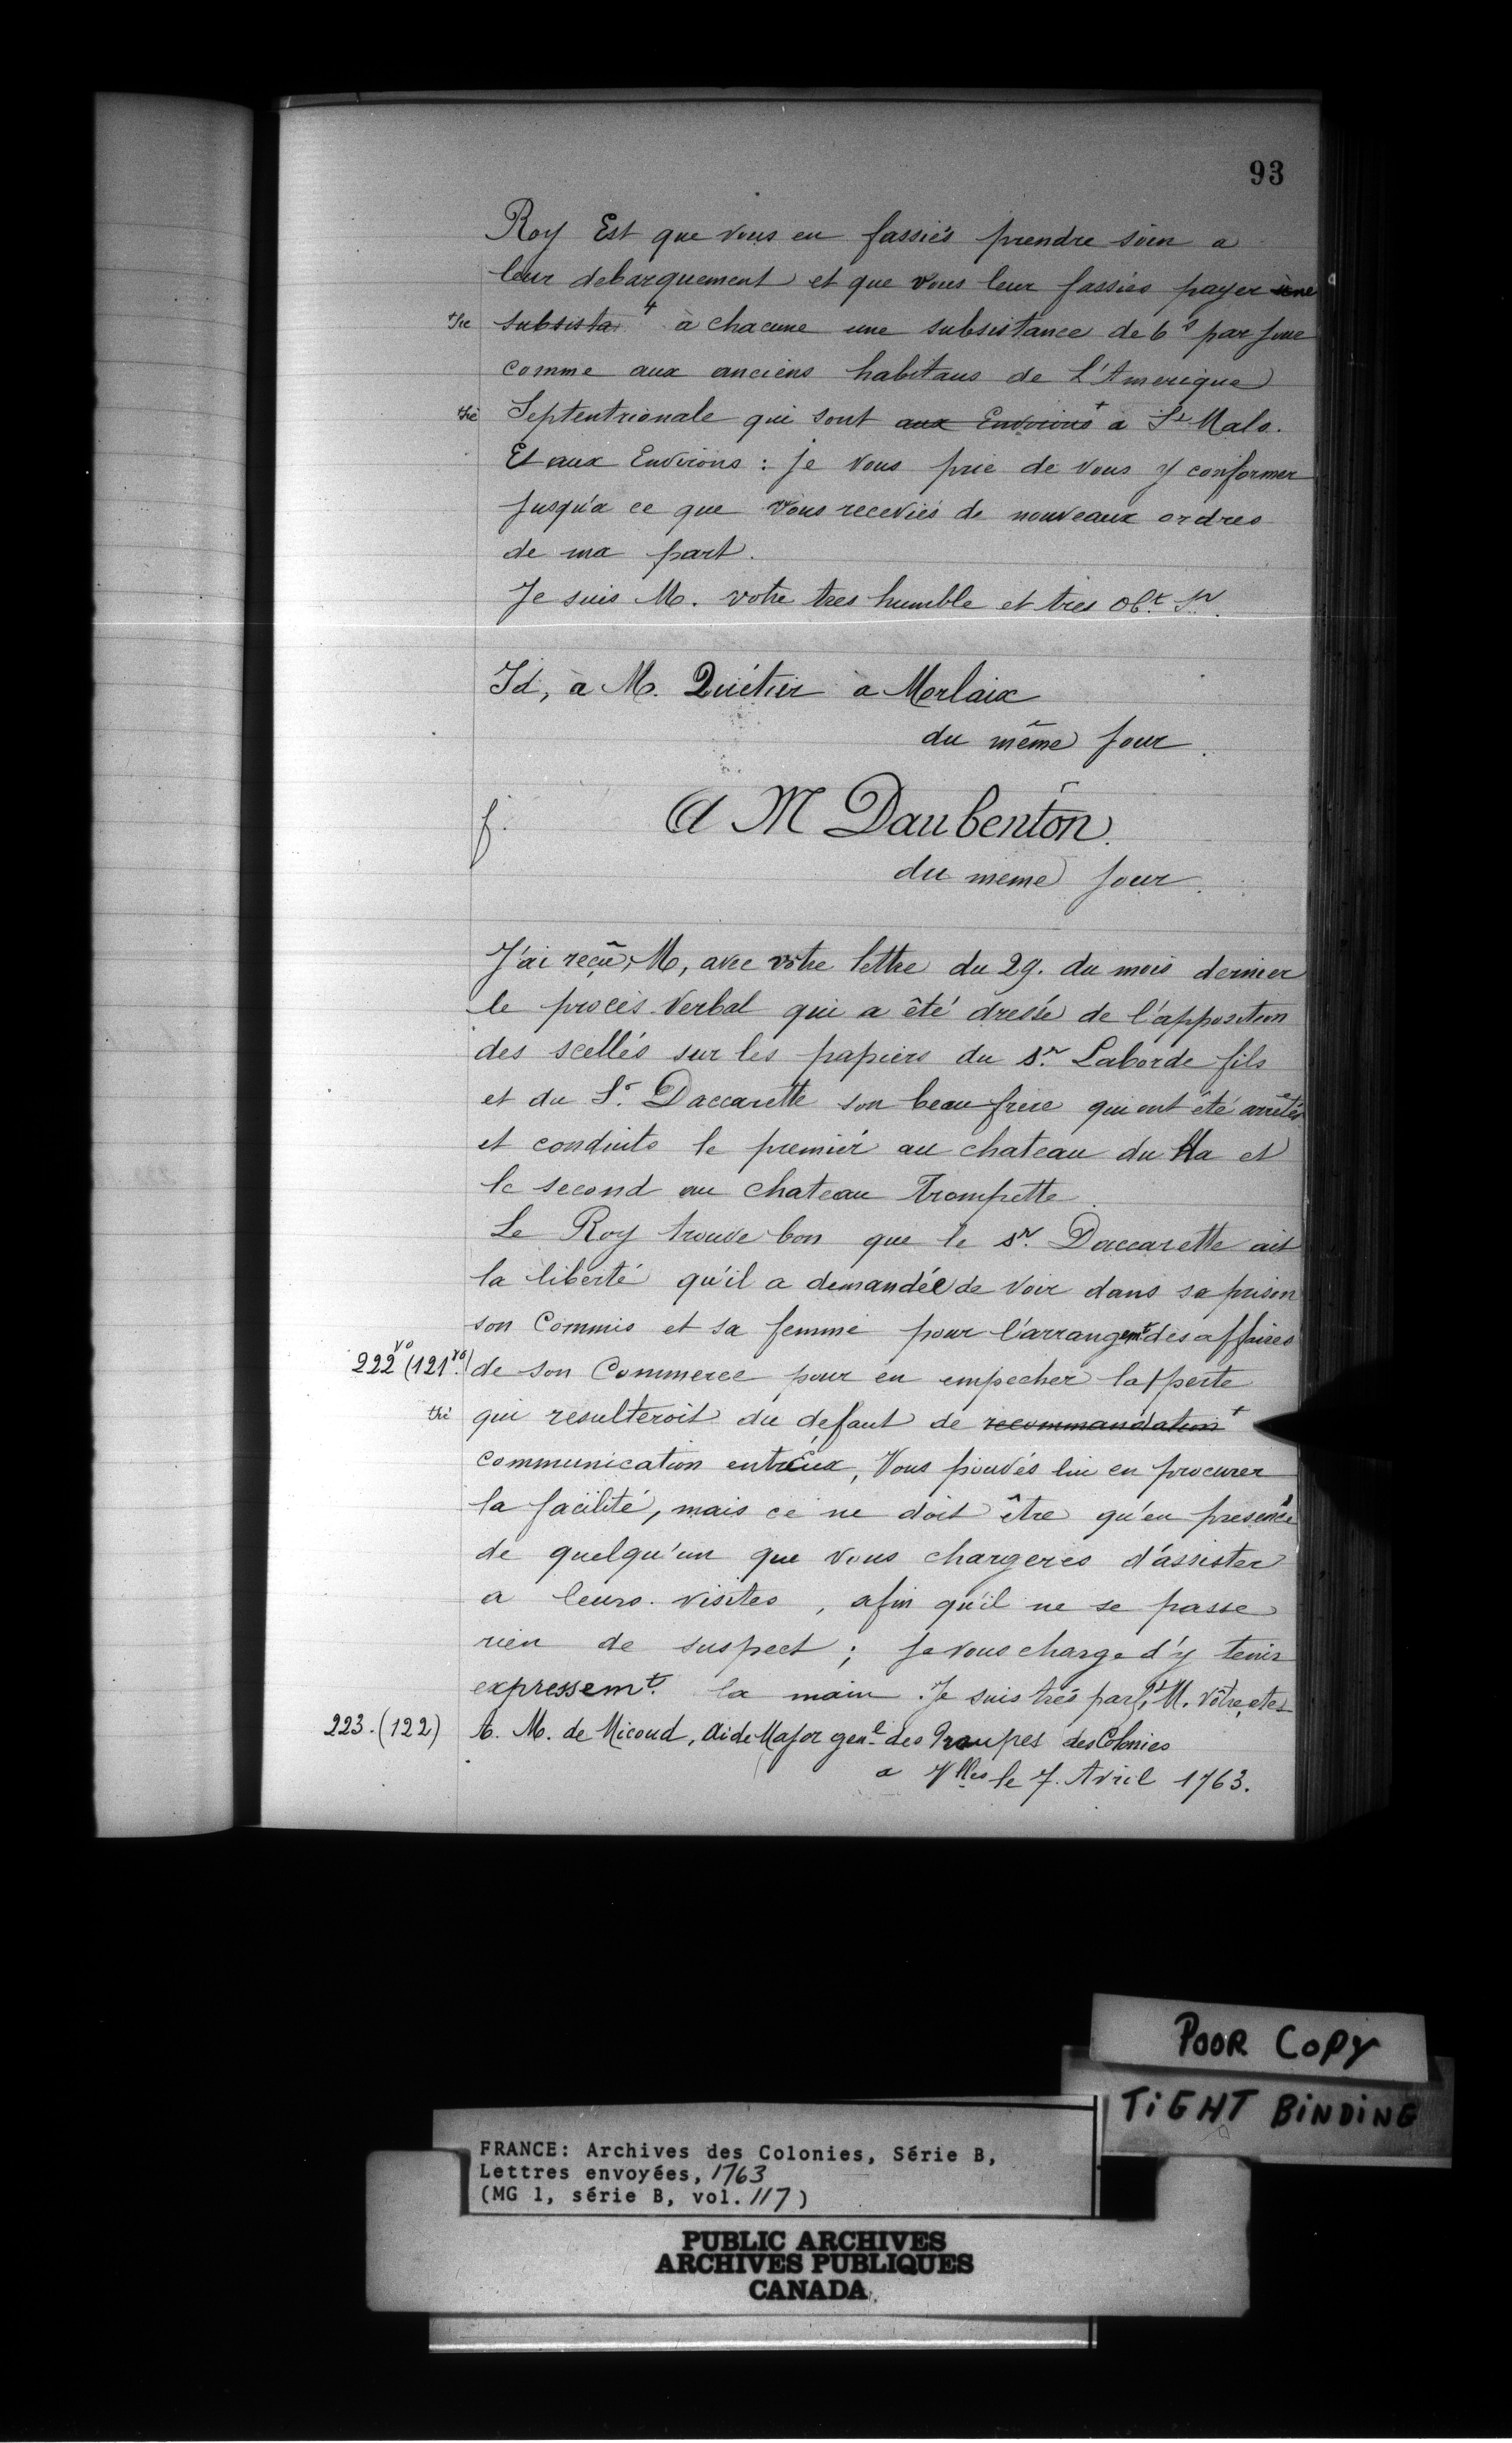 93
Roy Est que vous en fassiés prendre soin a
leur debarquement et que vous leur fassiés payer une
subsista à chacune une subsistance de 6 s par jour
comme aux anciens habitans de L'Amerique
Septentrionale qui sont aux Environs + a St Malo.
Et aux Environs : je vous prie de vous y conformer
jusqu'a ce que vous receviés de nouveaux ordres
de ma part.
Je suis M. votre tres humble et tres obt. Sr.
Id, à M. Quétier a Morlaix
du même jour.
f. A M Daubenton.
du meme jour.
J'ai reçû, M, avec votre lettre du 29. du mois dernier
le procés Verbal qui a êté dressé de l'apposition
des scellés sur les papiers du Sr. Laborde fils
et du Sr. Daccarette son beau frere qui ont êté arrêtés
et conduits le premier au chateau du Ha et
le second au chateau Trompette.
Le Roy trouve bon que le Sr. Daccarette ait
la liberté qu'il a demandée de voir dans sa prison
son Commis et sa femme pour l'arrangemt. des affaires
222 vo (121 vo.) de son Commerce pour en empecher la perte
qui resulteroit du defaut de recommandation +
communication entr'Eux, Vous pouvés lui en procurer
la facilité, mais ce ne doit être qu'en presence
de quelqu'un que vous chargeres d'assister
a leurs visites, afin qu'il ne se passe
rien de suspect ; Je vous charge d'y tenir
expressemt. la main. Je suis trés parft, M. vôtre, etc
223. (122) A. M. de Micoud, Aide Major genl. des Troupes des Colonies
a Vlles le 7. Avril 1763.
POOR COPY
TIGHT BINDING
FRANCE: Archives des Colonies, Série B,
Lettres envoyées, 1763
(MG 1, série B, vol. 117)
PUBLIC ARCHIVES
ARCHIVES PUBLIQUES
CANADA